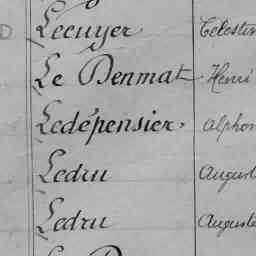 D Lecuyer Célestin
Le Denmat Henri
Ledépensier. Alphon
Ledru August
Ledru Auguste